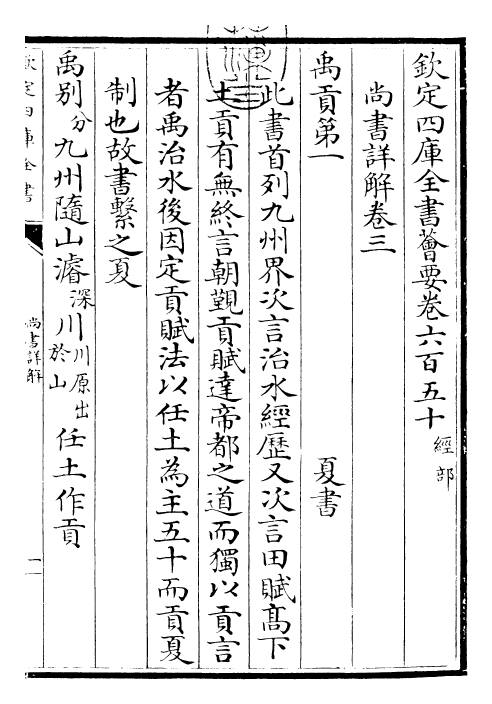 欽定四庫全書薈要卷六百五十 經部
尚書詳解卷三
禹貢第一 夏書
此書首列九州界次言治水經歷又次言田賦髙下
土貢有無終言朝覲貢賦達帝都之道而獨以貢言
者禹治水後因定貢賦法以任土為主五十而貢夏
制也故書繫之夏
禹別分九州隨山濬深川川原出於山任土作貢
欽定四庫全書
尚書詳解
一